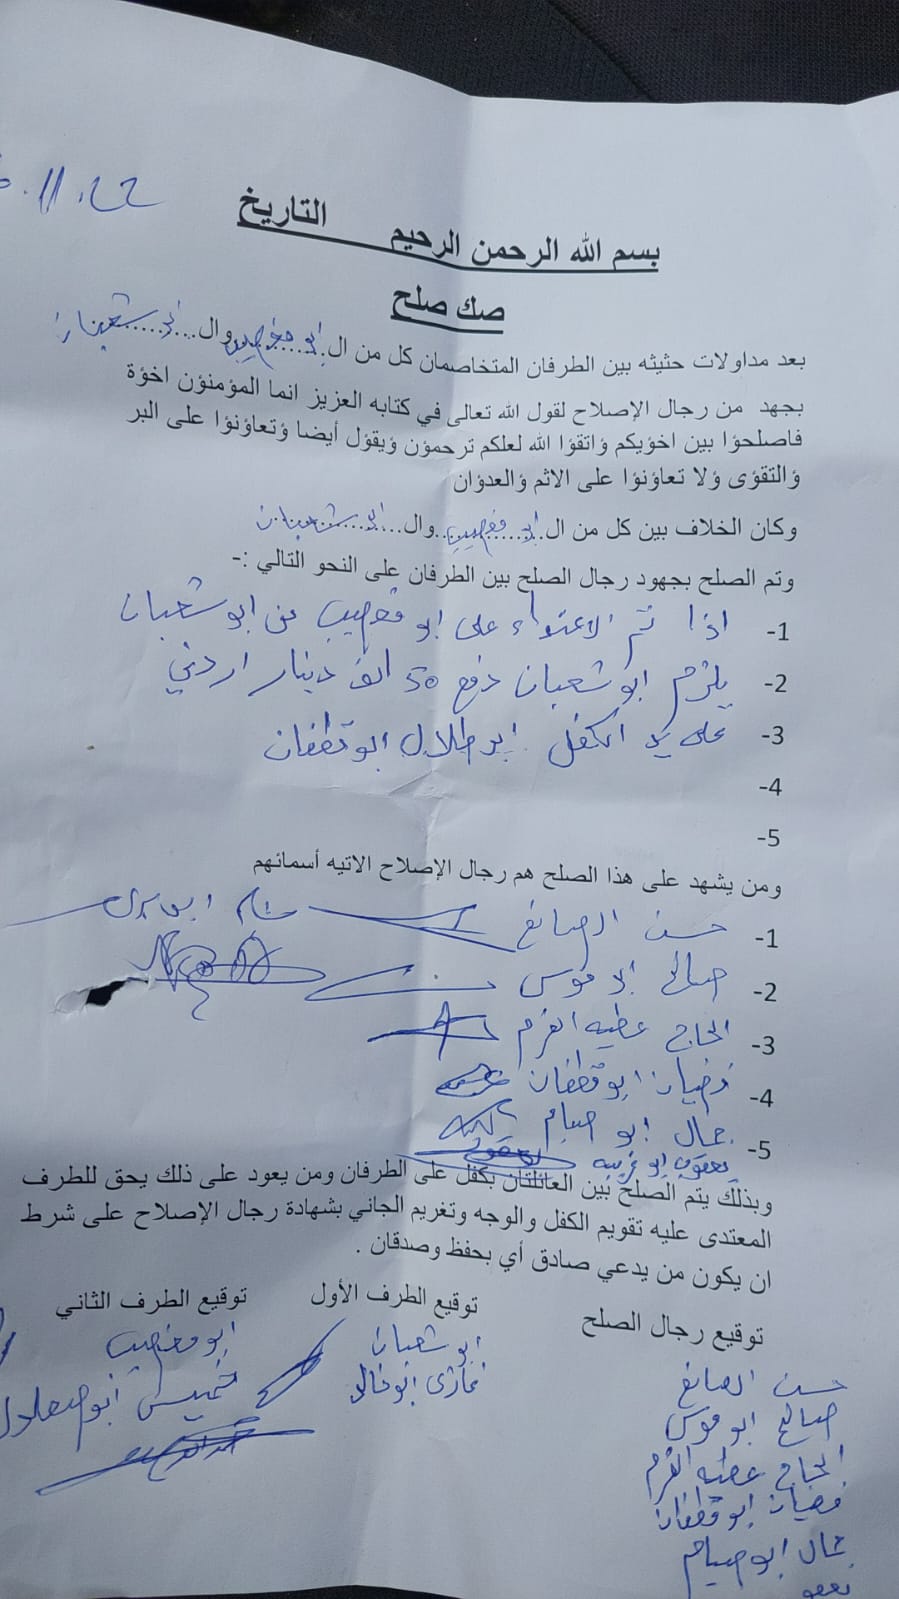 بسم الله الرحمن الرحيم التاريخ 11.22
صك صلح
بعد مداولات حثيثه بين الطرفان المتخاصمان كل من ال..ابو مغصيب..وال..ابو شعبان
بجهد من رجال الإصلاح لقول الله تعالى في كتابه العزيز انما المؤمنؤن اخؤة
فاصلحؤا بين اخؤيكم ؤاتقؤا الله لعلكم ترحمؤن ؤيقؤل أيضا ؤتعاؤنؤا على البر
ؤالتقؤى ؤلا تعاؤنؤا على الاثم ؤالعدؤان
وكان الخلاف بين كل من ال..ابو مغصيب..وال..ابو شعبان
وتم الصلح بجهود رجال الصلح بين الطرفان على النحو التالي :-
1- اذا تم الاعتداء على ابو مغصيب من ابو شعبان
2- يلزم ابو شعبان دفع 50 الف دينار اردني
3- على يد الكفل ابو طلال ابو قطفان
4-
5-
ومن يشهد على هذا الصلح هم رجال الإصلاح الاتيه أسمائهم
1- حسن الصانع
2- صالح ابو موسى
3- الحاج عطيه القرم
4- ابو قطفان
5- جمال ابو صيام
يعقوب ابو غريبه
وبذلك يتم الصلح بين العائلتان بكفل على الطرفان ومن يعود على ذلك يحق للطرف
المعتدى عليه تقويم الكفل والوجه وتغريم الجاني بشهادة رجال الإصلاح على شرط
ان يكون من يدعي صادق أي بحفظ وصدقان .
توقيع رجال الصلح توقيع الطرف الأول توقيع الطرف الثاني
حسن الصانع ابو شعبان ابو مغصيب
صالح ابو موسى غازي ابو خالد خميس
الحاج عطيه القرم
ابو قطفان
جمال ابو صيام